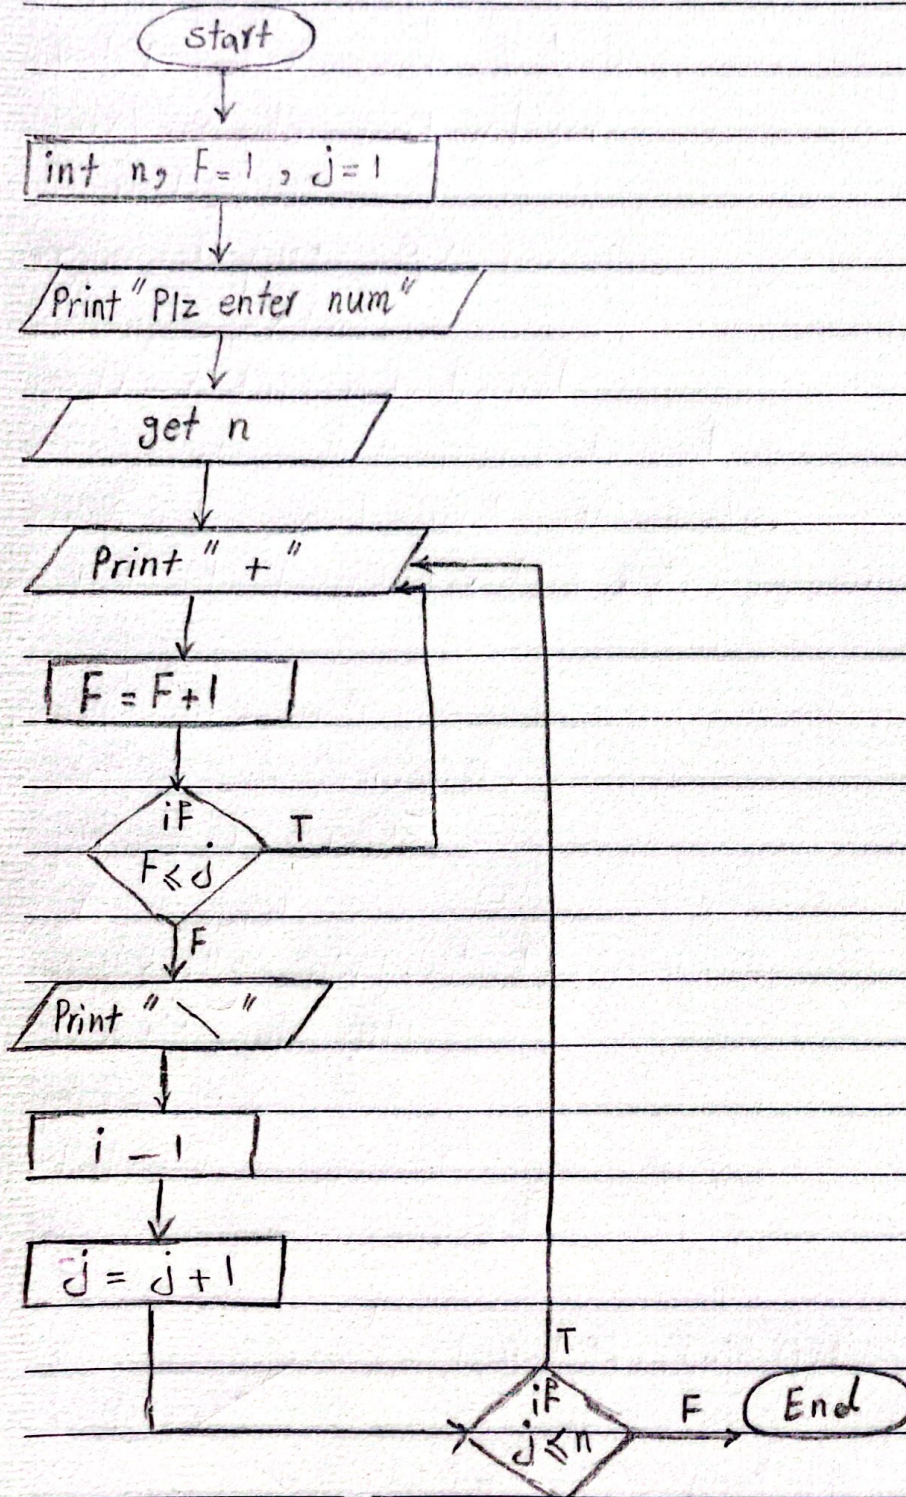 start
int n, F=1, j=1
Print "Plz enter num"
get n
Print "+"
F = F+1
if
F ≤ j
T
F
Print "\"
i - 1
j = j+1
T
if
j ≤ n
F
End